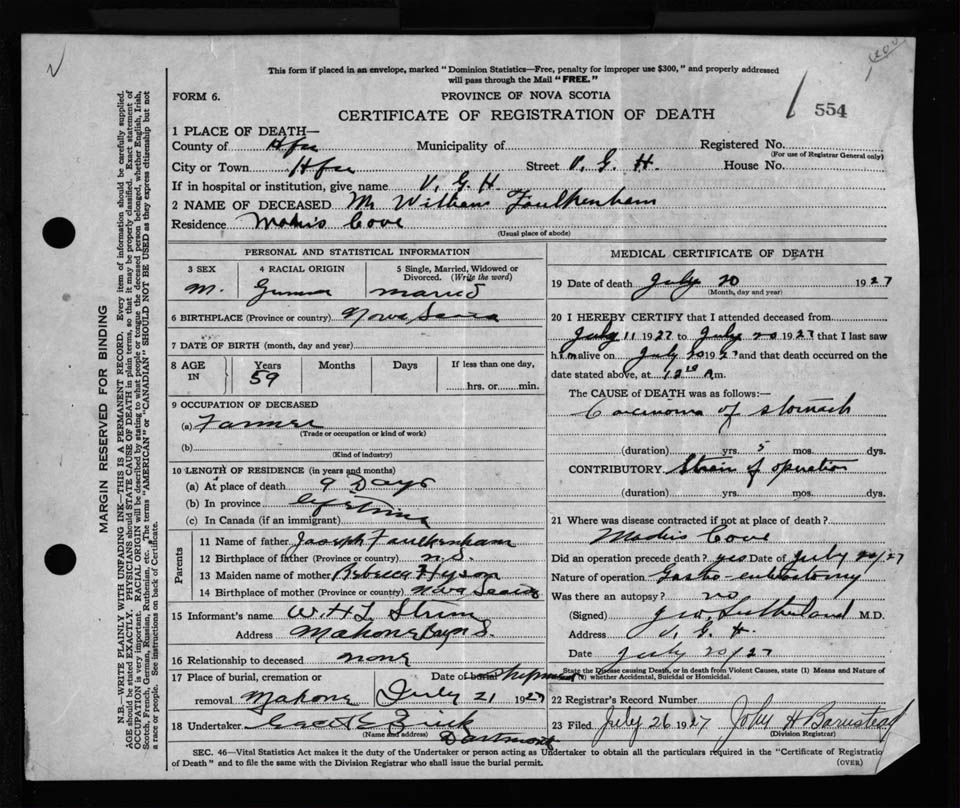 This form if placed in an envelope, marked "Dominion Statistics—Free, penalty for improper use $300," and properly addressed
will pass through the Mail "FREE."
FORM 6.
PROVINCE OF NOVA SCOTIA
CERTIFICATE OF REGISTRATION OF DEATH
554
1 PLACE OF DEATH—
County of Hfx Municipality of Registered No.
(For use of Registrar General only)
City or Town Hfx Street V. G. H. House No.
If in hospital or institution, give name V. G. H.
2 NAME OF DECEASED Mr William Faulkenham
Residence Cove
(Usual place of abode)
PERSONAL AND STATISTICAL INFORMATION
3 SEX 4 RACIAL ORIGIN 5 Single, Married, Widowed or Divorced. (Write the word)
M. German
6 BIRTHPLACE (Province or country) Nova Scotia
7 DATE OF BIRTH (month, day and year)
8 AGE IN Years Months Days If less than one day,
59 hrs. or min.
9 OCCUPATION OF DECEASED
(a) Farmer
(Trade or occupation or kind of work)
(b)
(Kind of industry)
10 LENGTH OF RESIDENCE (in years and months)
(a) At place of death 9 Days
(b) In province Lifetime
(c) In Canada (if an immigrant)
Parents
11 Name of father Joseph Faulkenham
12 Birthplace of father (Province or country) N.S.
13 Maiden name of mother Rebecca Hyson
14 Birthplace of mother (Province or country) Nova Scotia
15 Informant's name W.H.L.
Address Mahone Bay N.S.
16 Relationship to deceased none
17 Place of burial, cremation or Date of burial Shipment
removal Mahone July 21 1927
18 Undertaker
(Name and address) Dartmouth
MEDICAL CERTIFICATE OF DEATH
19 Date of death July 20 1927
(Month, day and year)
20 I HEREBY CERTIFY that I attended deceased from
July 11 1927 to July 20 1927 that I last saw
him alive on July 20 1927 and that death occurred on
date stated above, at 12 A m.
The CAUSE of DEATH was as follows:—
Carcinoma of stomach
(duration) yrs. 5 mos. dys.
CONTRIBUTORY. Strain of operation
(duration) yrs. mos. dys.
21 Where was disease contracted if not at place of death?
Cove
Did an operation precede death? yes Date of July 20/27
Nature of operation Gastro-enterostomy
Was there an autopsy? no
(Signed) Sutherland M.D.
Address V. G. H.
Date July 20/27
State the Disease causing Death, or in death from Violent Causes, state (1) Means and Nature of
(2) whether Accidental, Suicidal or Homicidal.
22 Registrar's Record Number
23 Filed July 26 1927 John H Barnstead
(Division Registrar)
SEC. 46—Vital Statistics Act makes it the duty of the Undertaker or person acting as Undertaker to obtain all the particulars required in the "Certificate of Registration
of Death" and to file the same with the Division Registrar who shall issue the burial permit. (OVER)
MARGIN RESERVED FOR BINDING
N.B.—WRITE PLAINLY WITH UNFADING INK—THIS IS A PERMANENT RECORD. Every item of information should be carefully supplied.
AGE should be stated EXACTLY. PHYSICIANS should STATE CAUSE OF DEATH in plain terms, so that it may be properly classified. Exact statement of
OCCUPATION is very important. RACIAL ORIGIN will be described by stating to what people or tongue the deceased person belonged, whether English, Irish,
Scotch, French, German, Russian, Ruthenian, etc. The terms "AMERICAN" or "CANADIAN" SHOULD NOT BE USED as they express citizenship but not
a race or people. See instructions on back of Certificate.